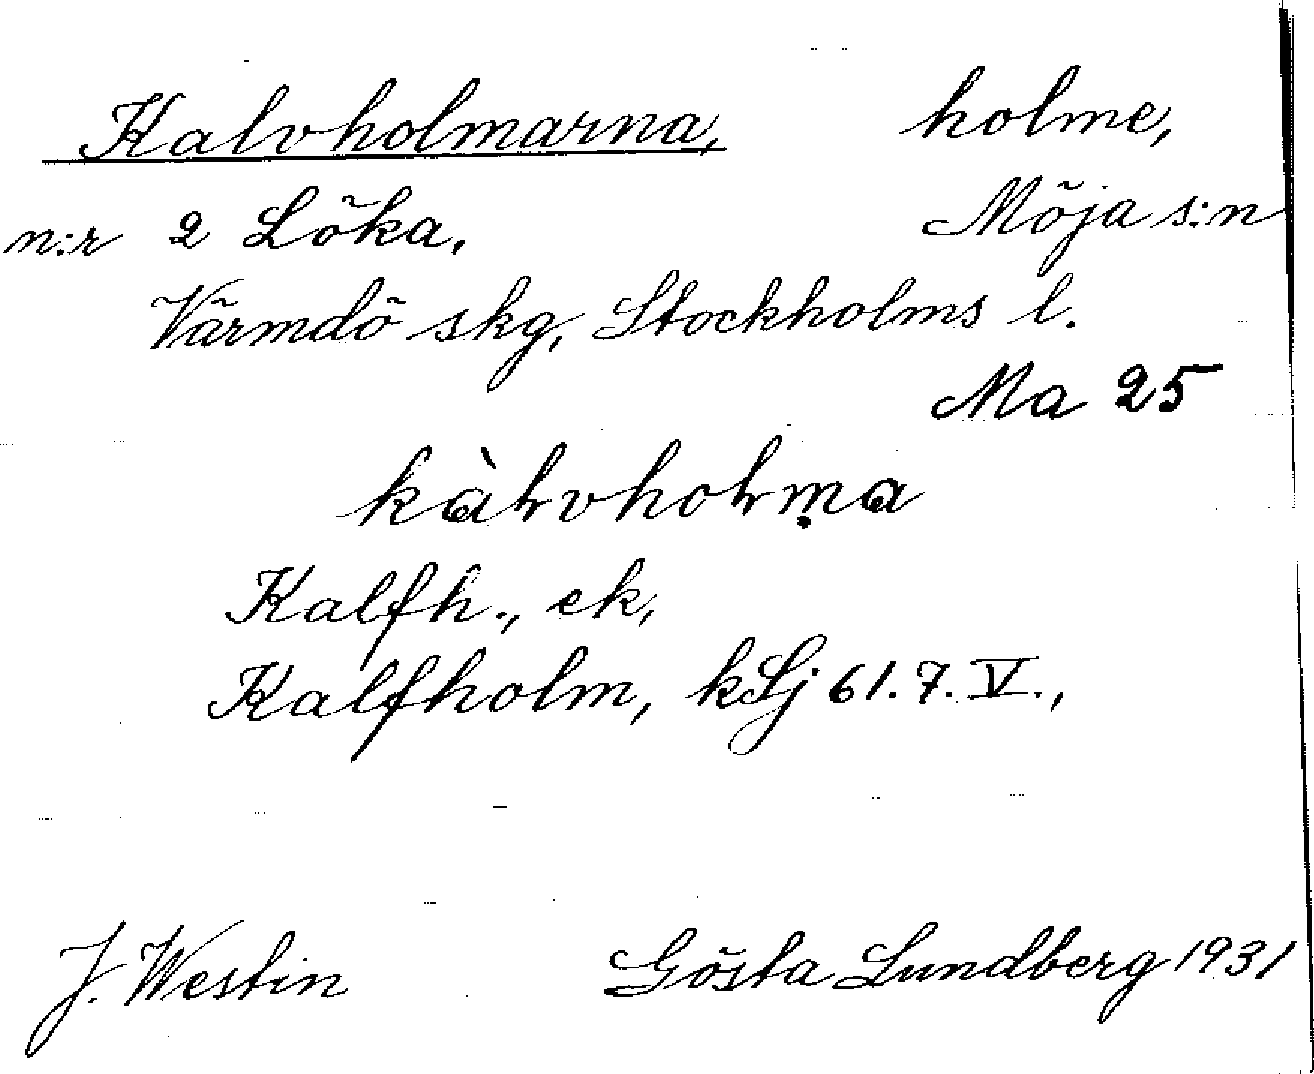 Kalvholmarna, holme,
n:r 2 Löka, Möja s:n
Värmdö skg, Stockholms l.
Ma 25
kàɫvhoɫm̥a
Kalfh., ek,
Kalfholm, kLj 61.7.V.,
J. Westin Gösta Lundberg 1931